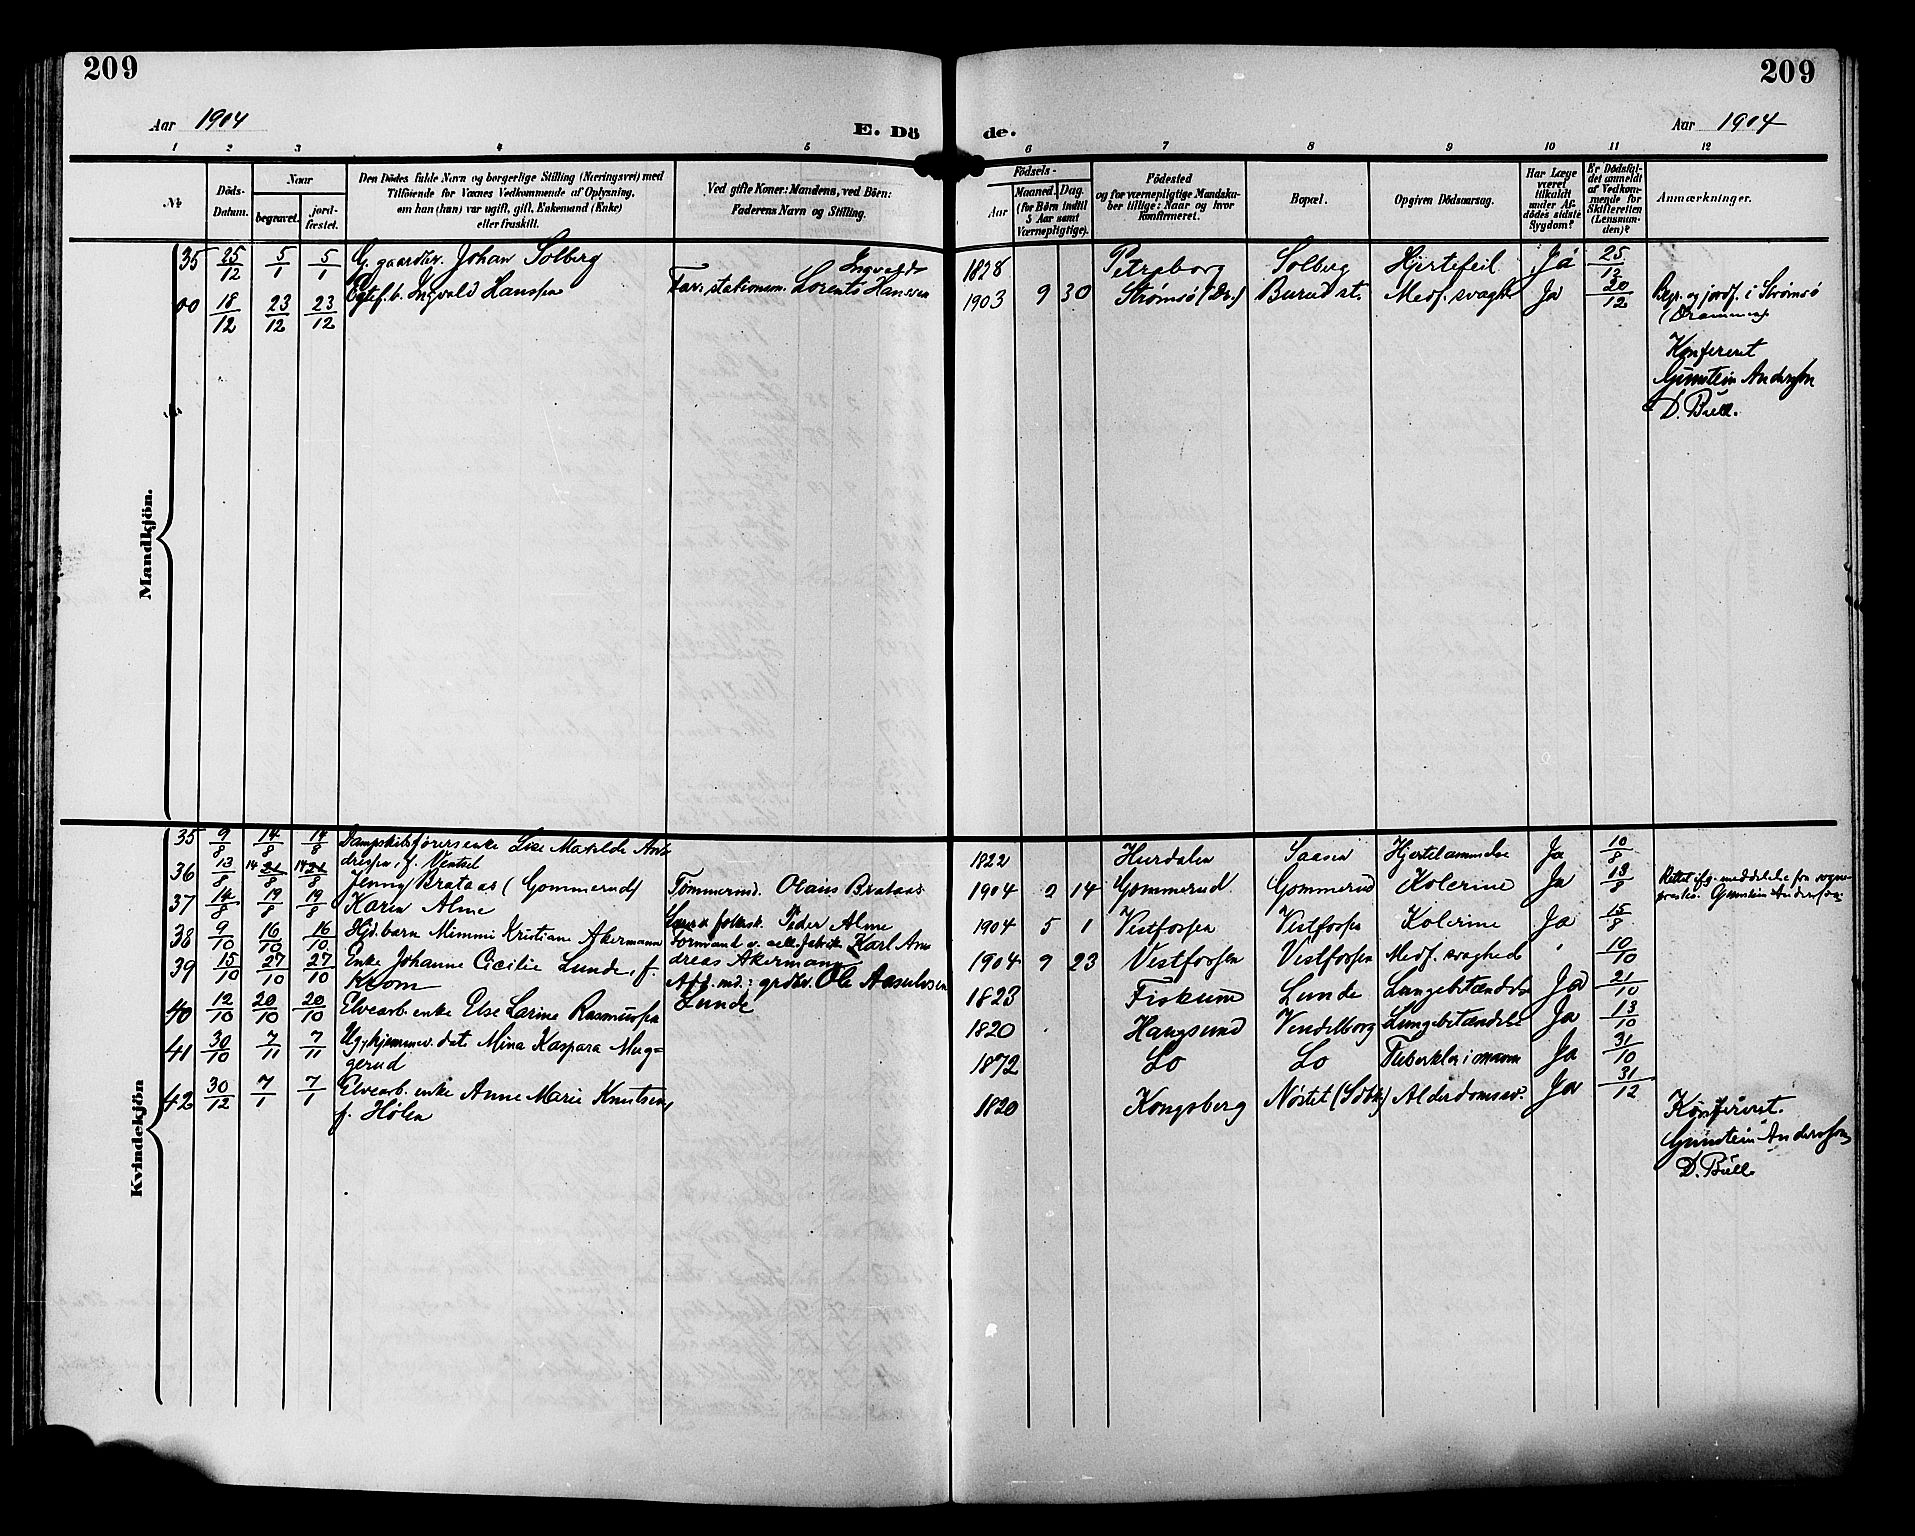 209
209
Aar 1904
E. Dö
de.
Aar 1904
1 2 3 4 5 6 7 8 9 10 11 12
No
Döds-
Datum.
Naar
begravet.
jord-
fæstet.
Den Dödes fulde Navn og borgerlige Stilling (Næringsvei) med
Tilföiende for Voxnes Vedkommende af Oplysning,
om han (hun) var ugift, gift, Enkemand (Enke)
eller fraskilt.
Ved gifte Koner: Mandens, ved Börn:
Faderens Navn og Stilling.
Födsels-
Aar
Maaned. Dag.
(for Börn indtil
5 Aar samt
Værnepligtige).
Födested
og for værnepligtige Mandska-
ber tillige: Naar og hvor
Konfirmeret.
Bopæl.
Opgiven Dödsaarsag.
Har Læge
været
tilkaldt
under Af-
dödes sidste
Sygdom?
Er Dödsfal-
det anmeldt
af Vedkom-
mende for
Skifteretten
(Lensman-
den)?
Anmærkninger.
Mandkjön.
35 25/12 5/1 5/1 G. gaardbr. Johan Solberg 1828 Solberg Hjertefeil Ja 25/12
00 18/12 23/12 23/12 Egtef. b. Ingvald Hanssen Fav. stationsm. Lorents Ingvalds Hanssen 1903 9 30 Strømsø (Dr.) Burud st. Medf. svagh. Ja 20/12 Begr. og jordf. i Strømsø
(Drammen)
Konfereret
Gunstein Anderssen
D. Bull.
Kvindekjön
35 9/8 14/8 14/8 Dampskibsførersenke Lise Matilde An-
dresen, f. Ventsel 1822 Hurdalen Saasen Hjertelammelse Ja 10/8
36 13/8 14 21/8 14 21/8 Jenny Brataas (Gommerud) Tømmermd. Olaus Brataas 1904 2 14 Gommerud Gommerud Kolerine Ja 13/8 Rettet ifg. meddelelse fra sogne-
prest Gunstein Anderssen
37 14/8 19/8 19/8 Karen Alme Peder Alme 1904 5 1 Vestfossen Vestfossen Kolerine Ja 15/8
38 9/10 16/10 16/10 Hjd. barn Mimmi Kristiane Akermann Formand v. cell. fabrik Karl An-
dreas Akermann 1904 9 23 Vestfossen Vestfossen Medf. svaghed 10/10
39 15/10 27/10 27/10 Enke Johanne Cicilie Lunde, f.
Krom Aft. md.: grdbr. Ole Aasulvsen
Lunde 1823 Fiskum Lunde Lungebetændelse Ja 21/10
40 12/10 20/10 20/10 Elvearb. enke Else Larine Rasmussen 1820 Haugsund Vendelborg Lungebetændelse Ja 13/10
41 30/10 7/11 7/11 Ug. hjemmev. dat. Mina Kaspara Mug-
gerud 1872 Lo Lo Ja 31/10
42 30/12 7/1 7/1 Elvearb. enke Anne Marie Knutsen,
f. Hølen 1820 Kongsberg Nøstet Alderdomssv. Ja 31/12
Konfereret.
Gunstein Anderssen
D. Bull